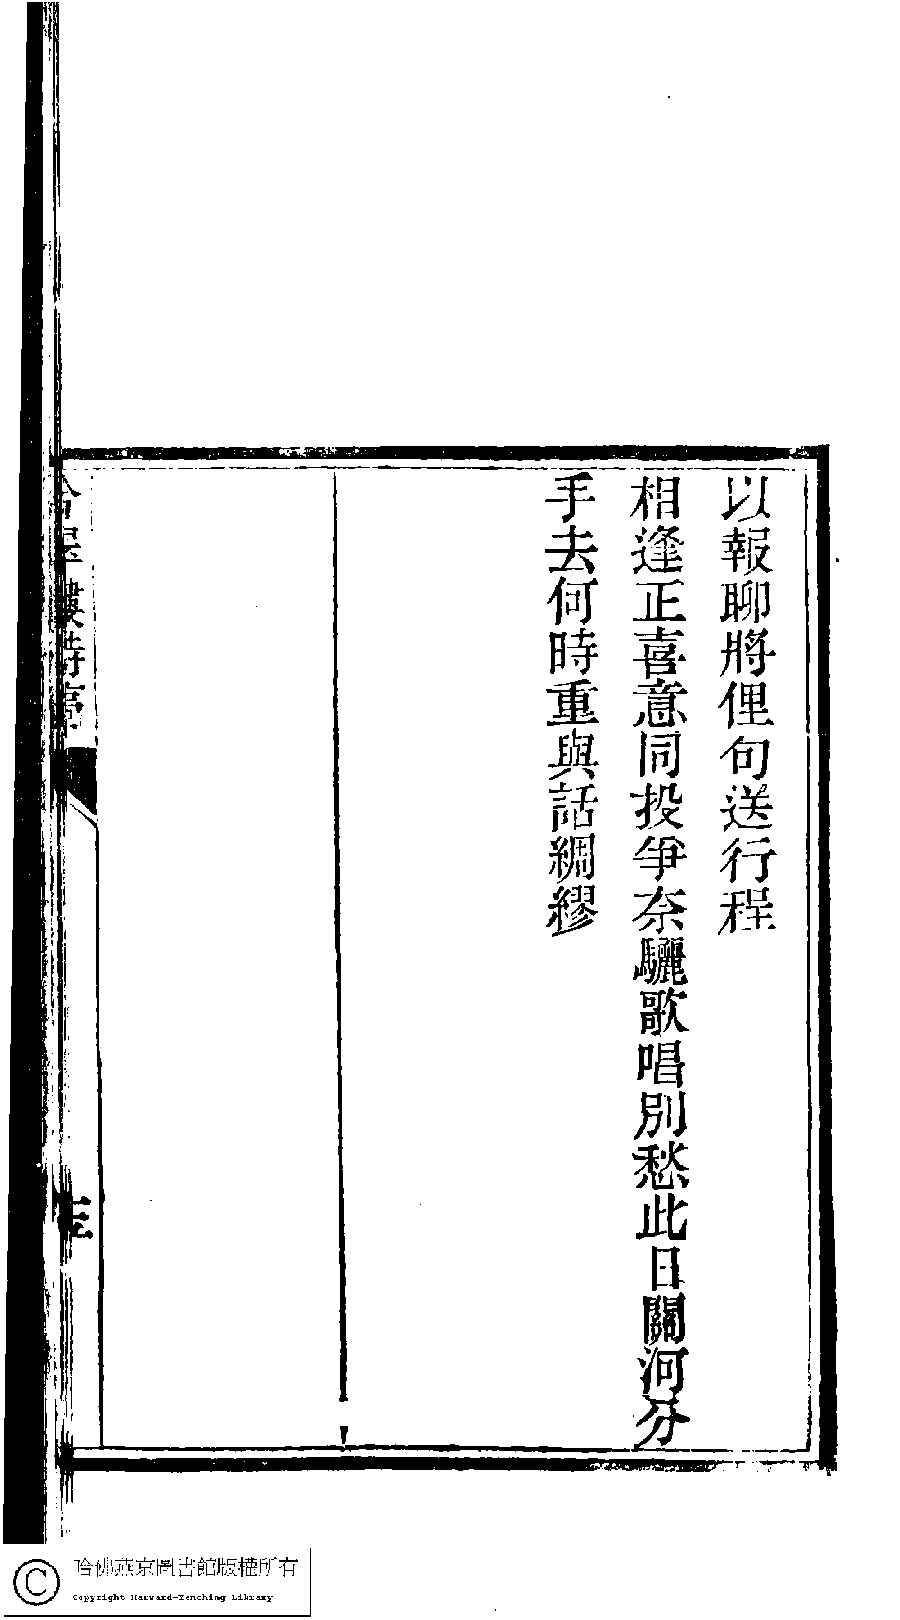 以報聊將俚句送行程
相逢正喜意同投爭奈驪歌唱別愁此日關河分
手去何時重與話綢繆
樓詩
哈佛燕京圖書館版權所有
Copyright Harvard-Yenching Library